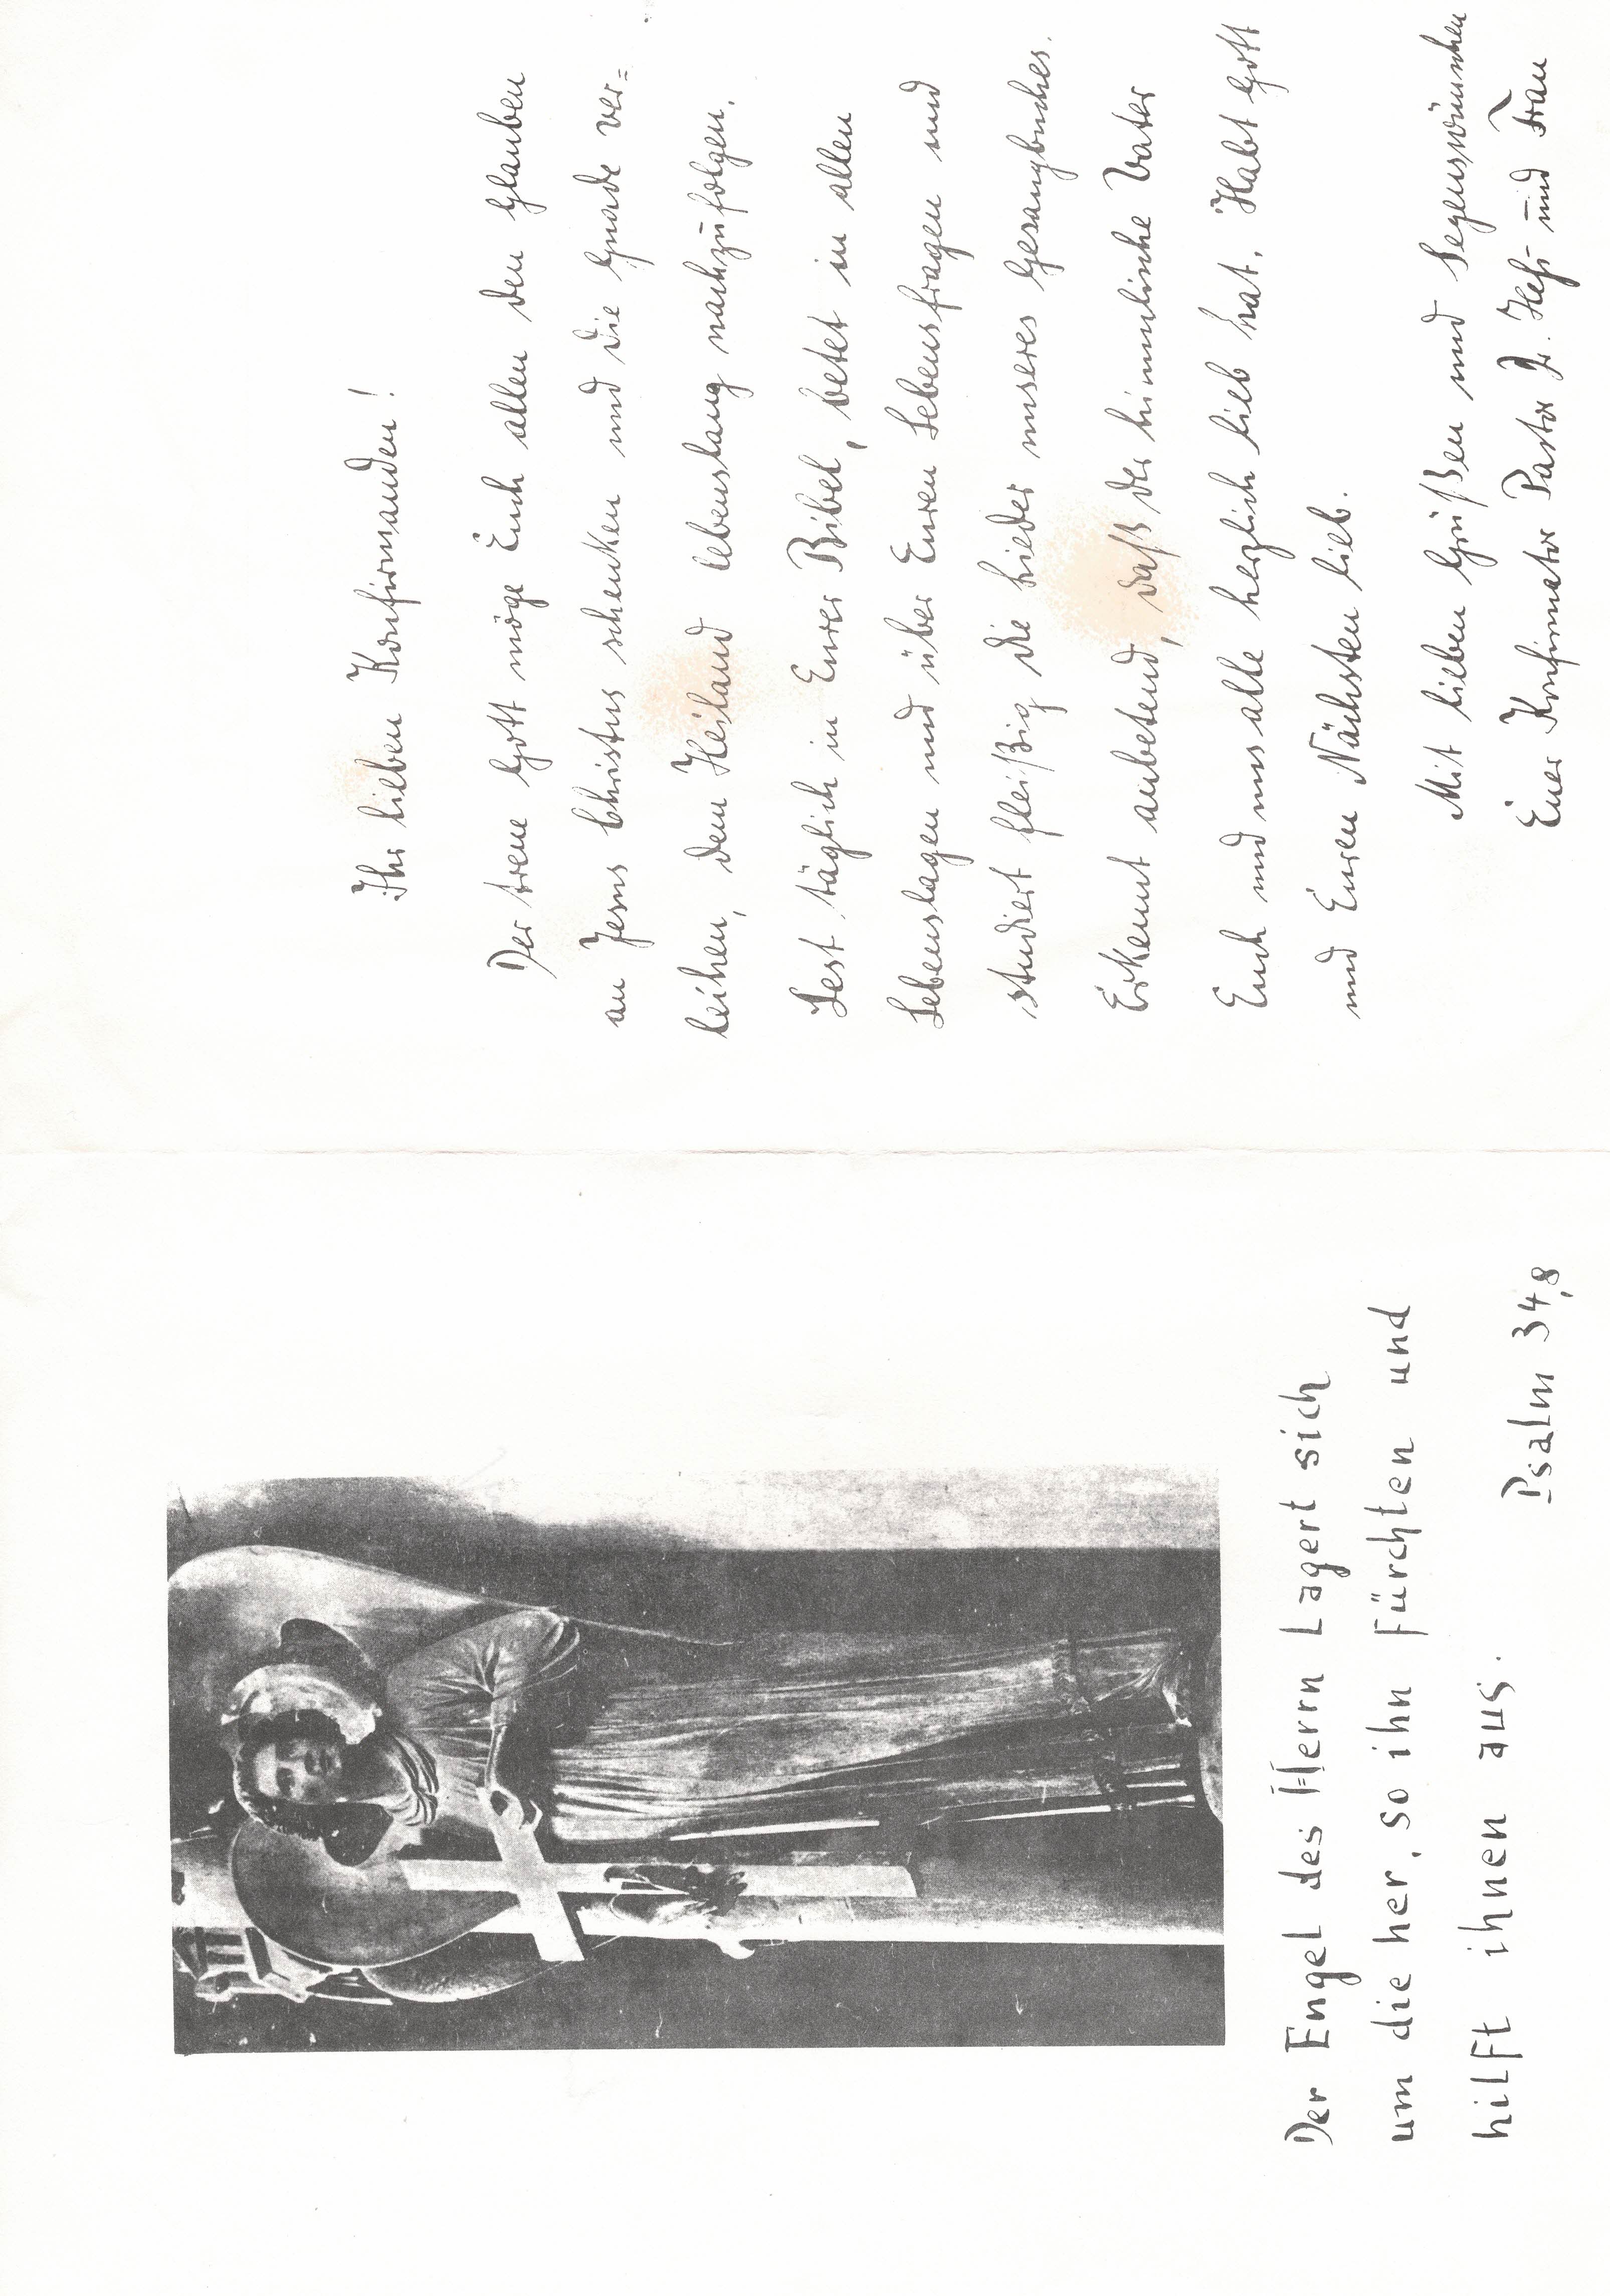 Der Engel des Herrn Lagert sich
um die her, so ihn fürchten und
hilft ihnen aus.
Psalm 34,8
Ihr lieben Konfirmanden!
Der treue Gott möge Euch allen den Glauben
an Jesus Christus schenken und die Gnade ver=
leihen, dem Heiland lebenslang nachzufolgen.
Lest täglich in Eurer Bibel, betet in allen
Lebenslagen und über Euren Lebensfragen und
studiert fleißig die Lieder unseres Gesangbuches.
Erkennt anbetend, daß der himmlische Vater
Euch und uns alle herzlich lieb hat. Habt Gott
und Euren Nächsten lieb.
Mit lieben Grüßen und Segenswünschen
Euer Konfirmator Pastor Dr. Heß und Frau